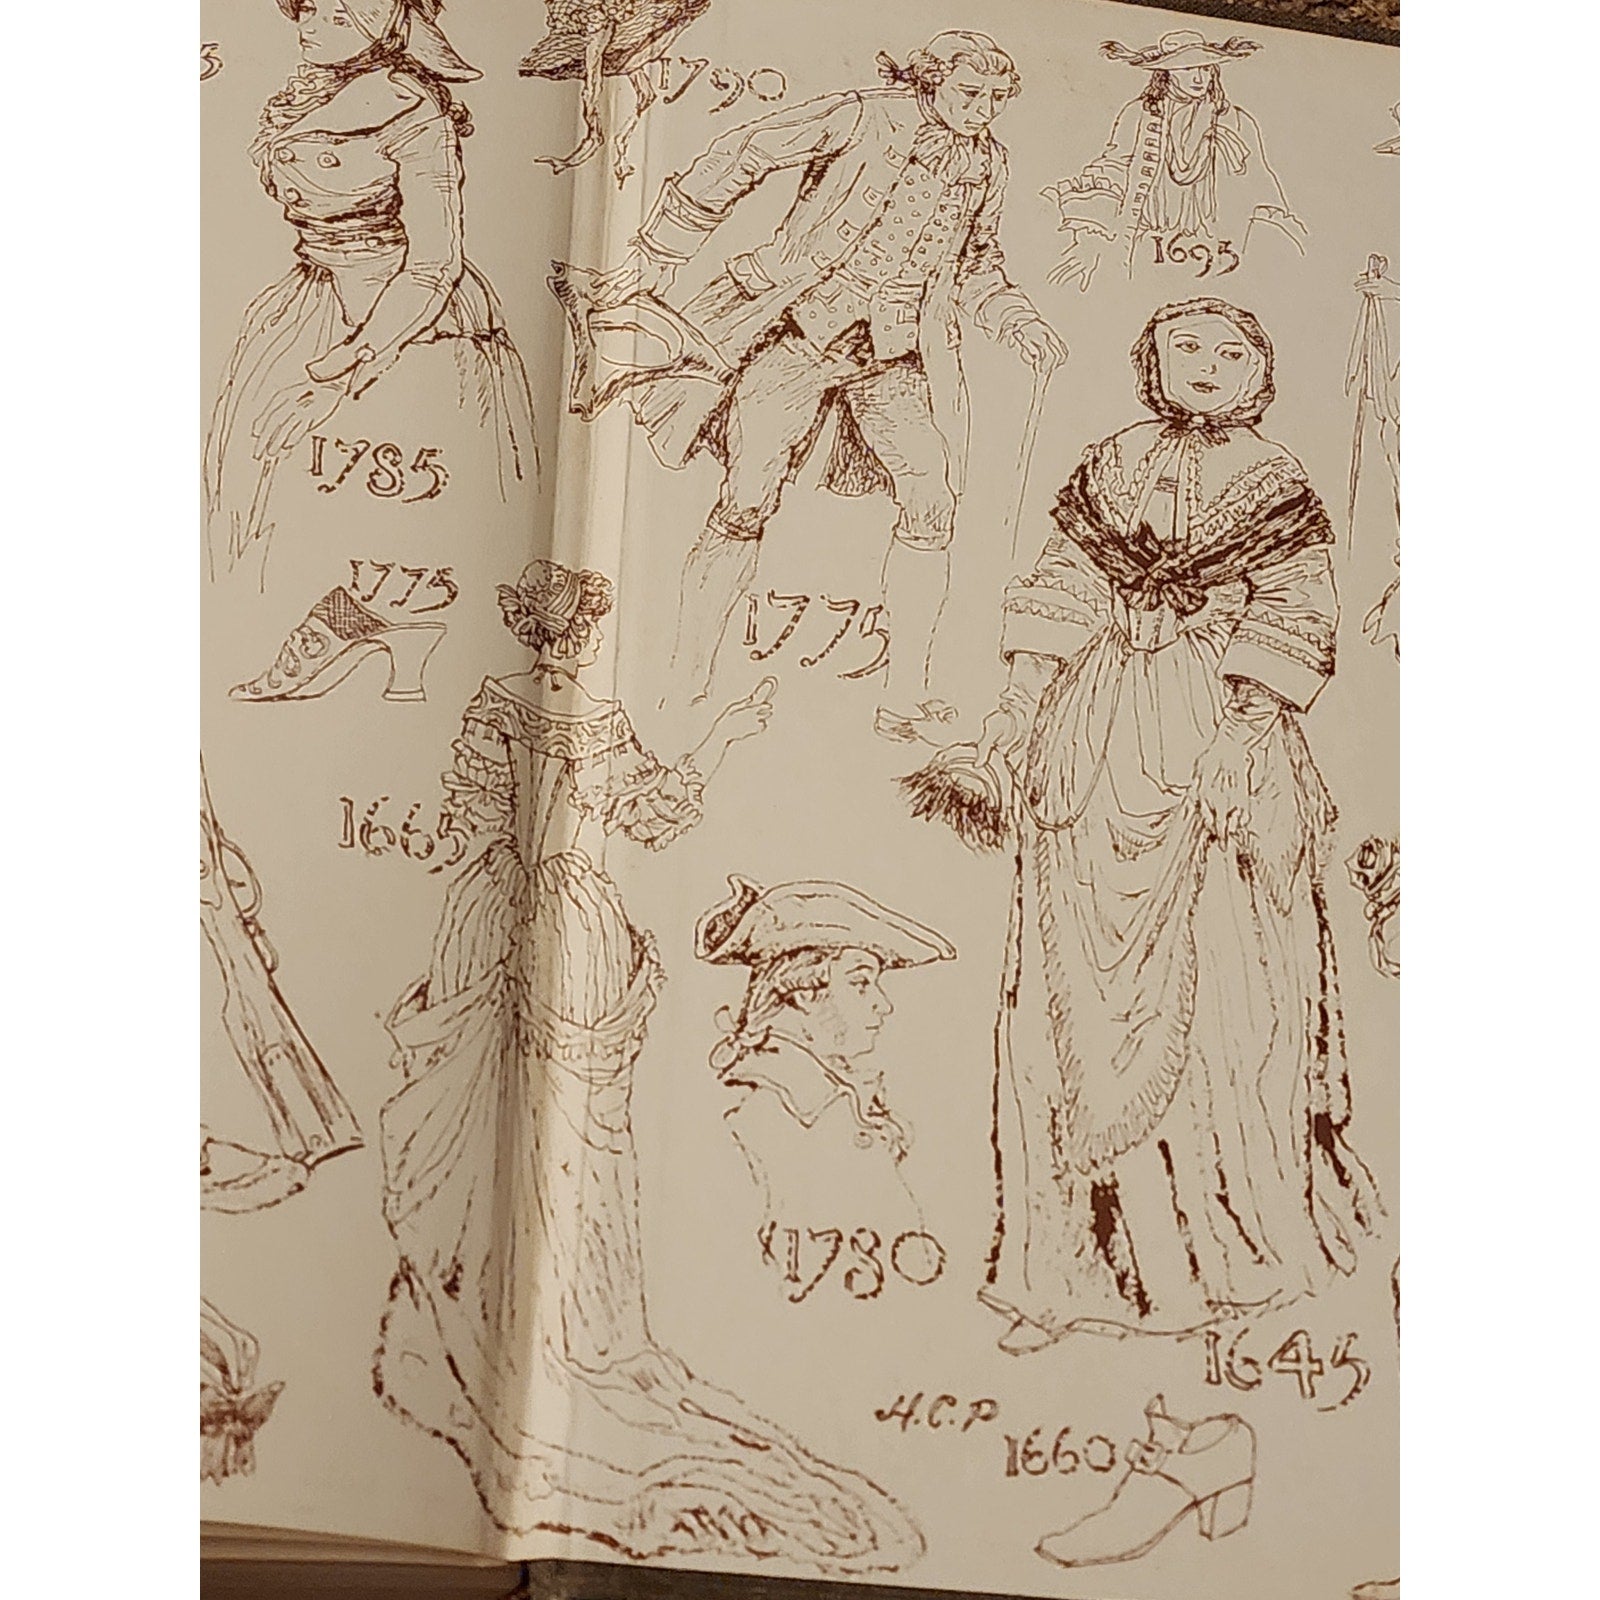 5
1790
1695
1785
1775
1775
1665
1780
1645
H.C.P
1660